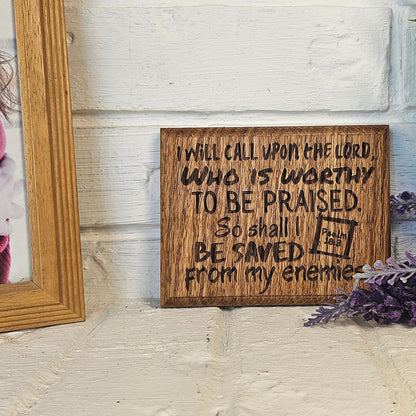 I WILL CALL UPON tHE LORD,
WHO IS WORtHY
TO BE PRAISED.
So shall I
BE SAVED
from my enemies
Psalm
18:3